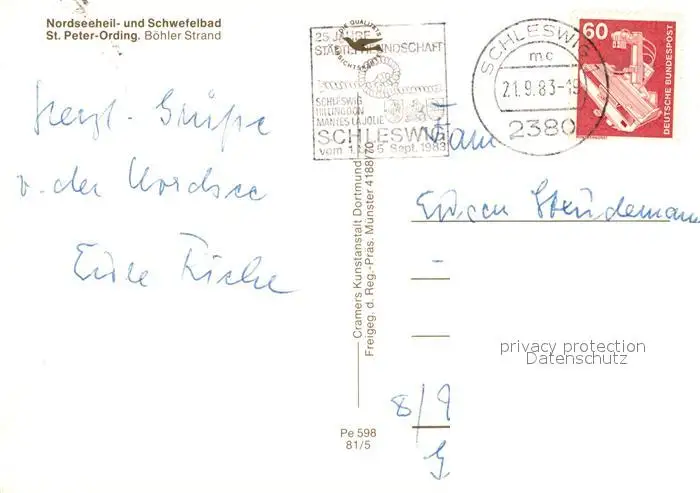 Nordseeheil- und Schwefelbad
St. Peter-Ording. Böhler Strand
Herzl. Grüße
v. der Nordsee
Eure
25 JAHRE
STÄDTEFREUNDSCHAFT
SCHLESWIG
HILLINGDON
MANTES LA JOLIE
SCHLESWIG
Sept. 1983
SCHLESWIG
mc
21.9.83-19
2380
60
DEUTSCHE BUNDESPOST
Fam
Cramers Kunstanstalt Dortmund
Freigeg. d. Reg.-Präs. Münster 4188/70
privacy protection
Datenschutz
8/9
Pe 598
81/5